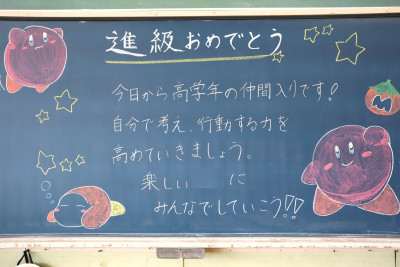 進級おめでとう
今日から高学年の仲間入りです!
自分で考え、行動する力を
高めていきましょう。
楽しい に
みんなでしていこう!!